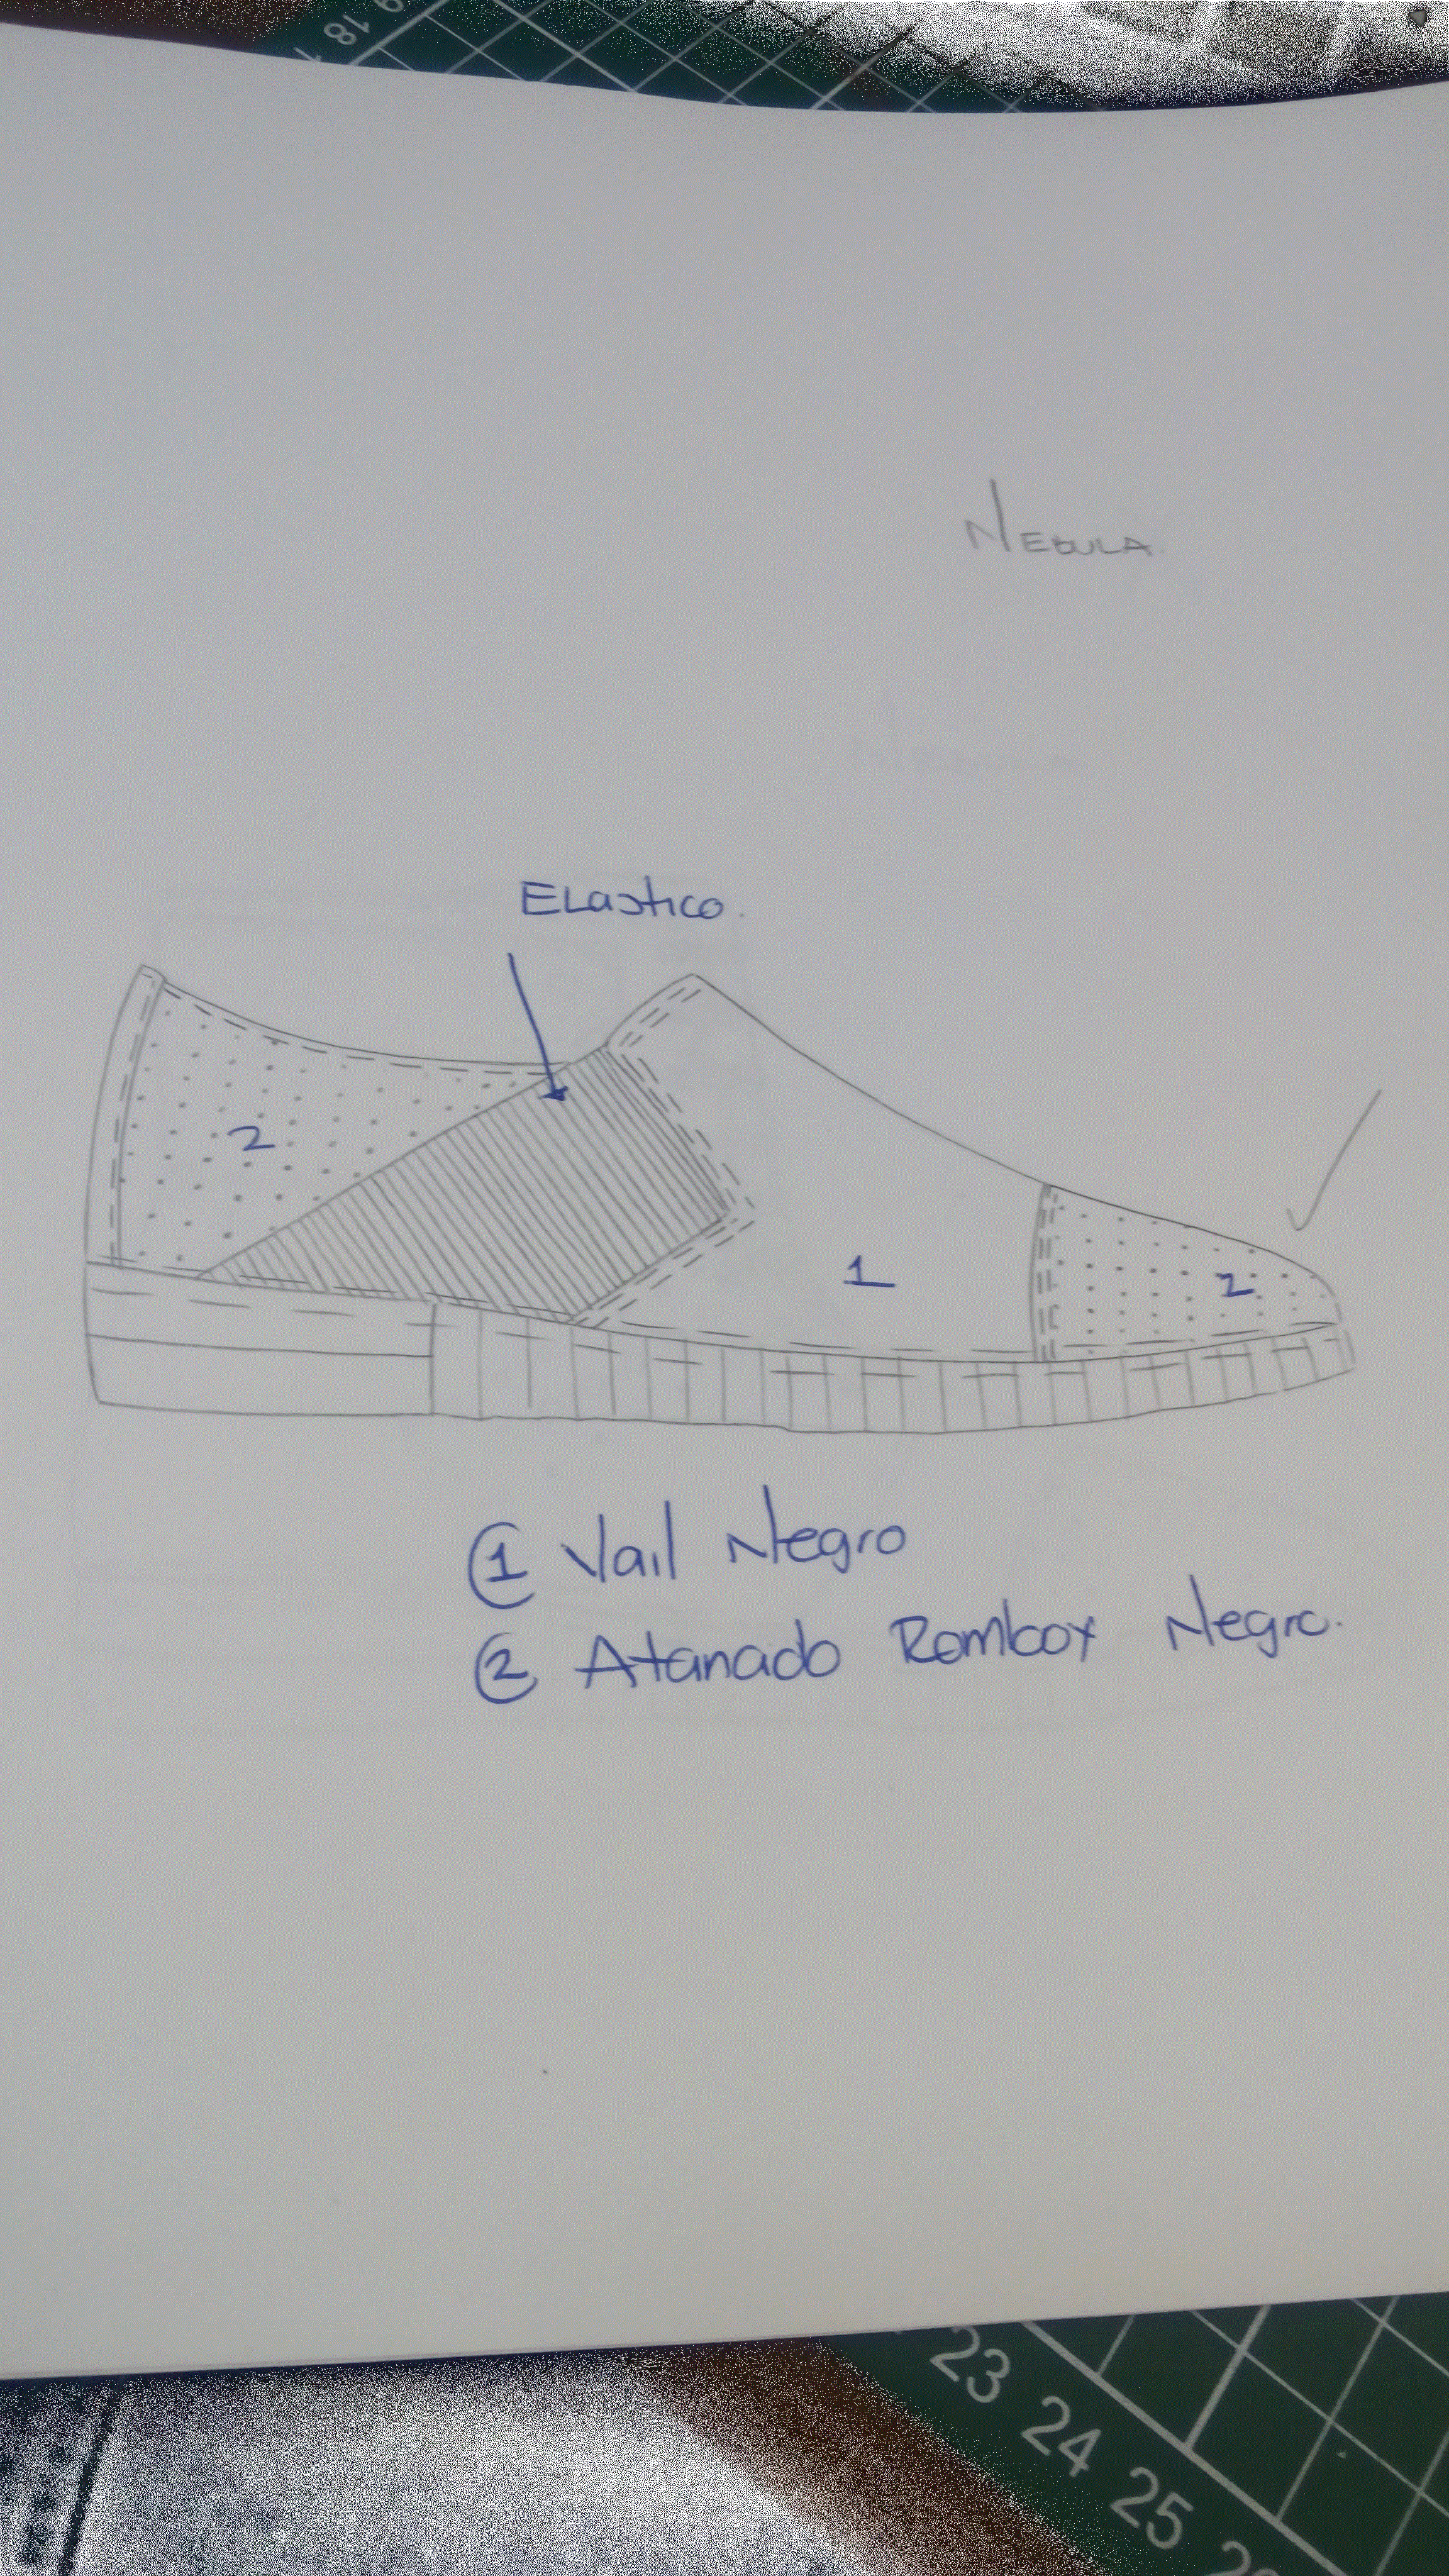 18
NEBULA
NEBULA
Elastico.
2
1
2
1 Vail Negro
2 Atanado Rombox Negro.
23
24
25